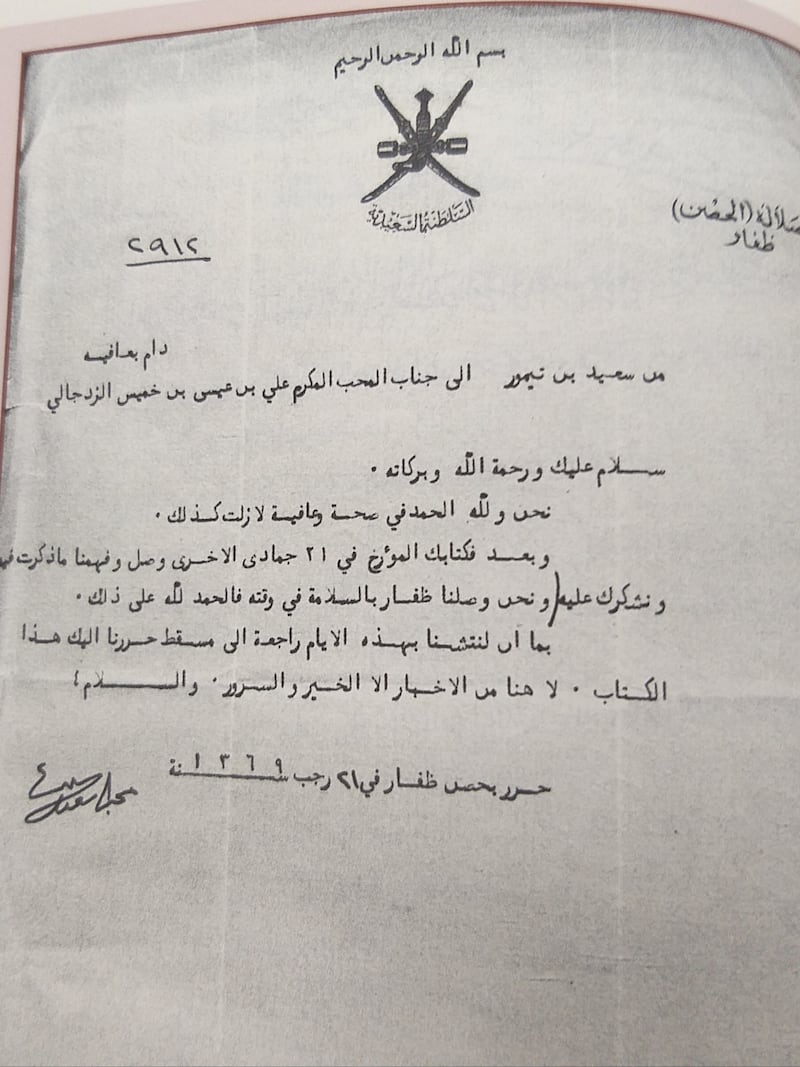 بسم الله الرحمن الرحيم
السلطنة السعيدية
صلالة (الحصن)
ظفار
٢٩١٢
دام بعافيه
من سعيد بن تيمور الى جناب المحب المكرم علي بن عيسى بن خميس الزدجالي
ســـلام عليك ورحمة الله وبركاته .
نحن ولله الحمد في صحة وعافية لازلت كذلك .
وبعـــد فكتابك المؤرخ في ٢١ جمادى الاخرى وصل وفهمنا ماذكرت فيه
ونشكرك عليه/ونحن وصلنا ظفار بالسلامة في وقته فالحمد لله على ذلك .
بما ان لنتشنا بهـذه الايام راجعة الى مسقط حررنا اليك هـذا
الكتاب . لا هنا من الاخبار الا الخير والسرور . والســـلام
حـرر بحصن ظفـار في ٢١ رجب ســنة ١٣٦٩
سعيد